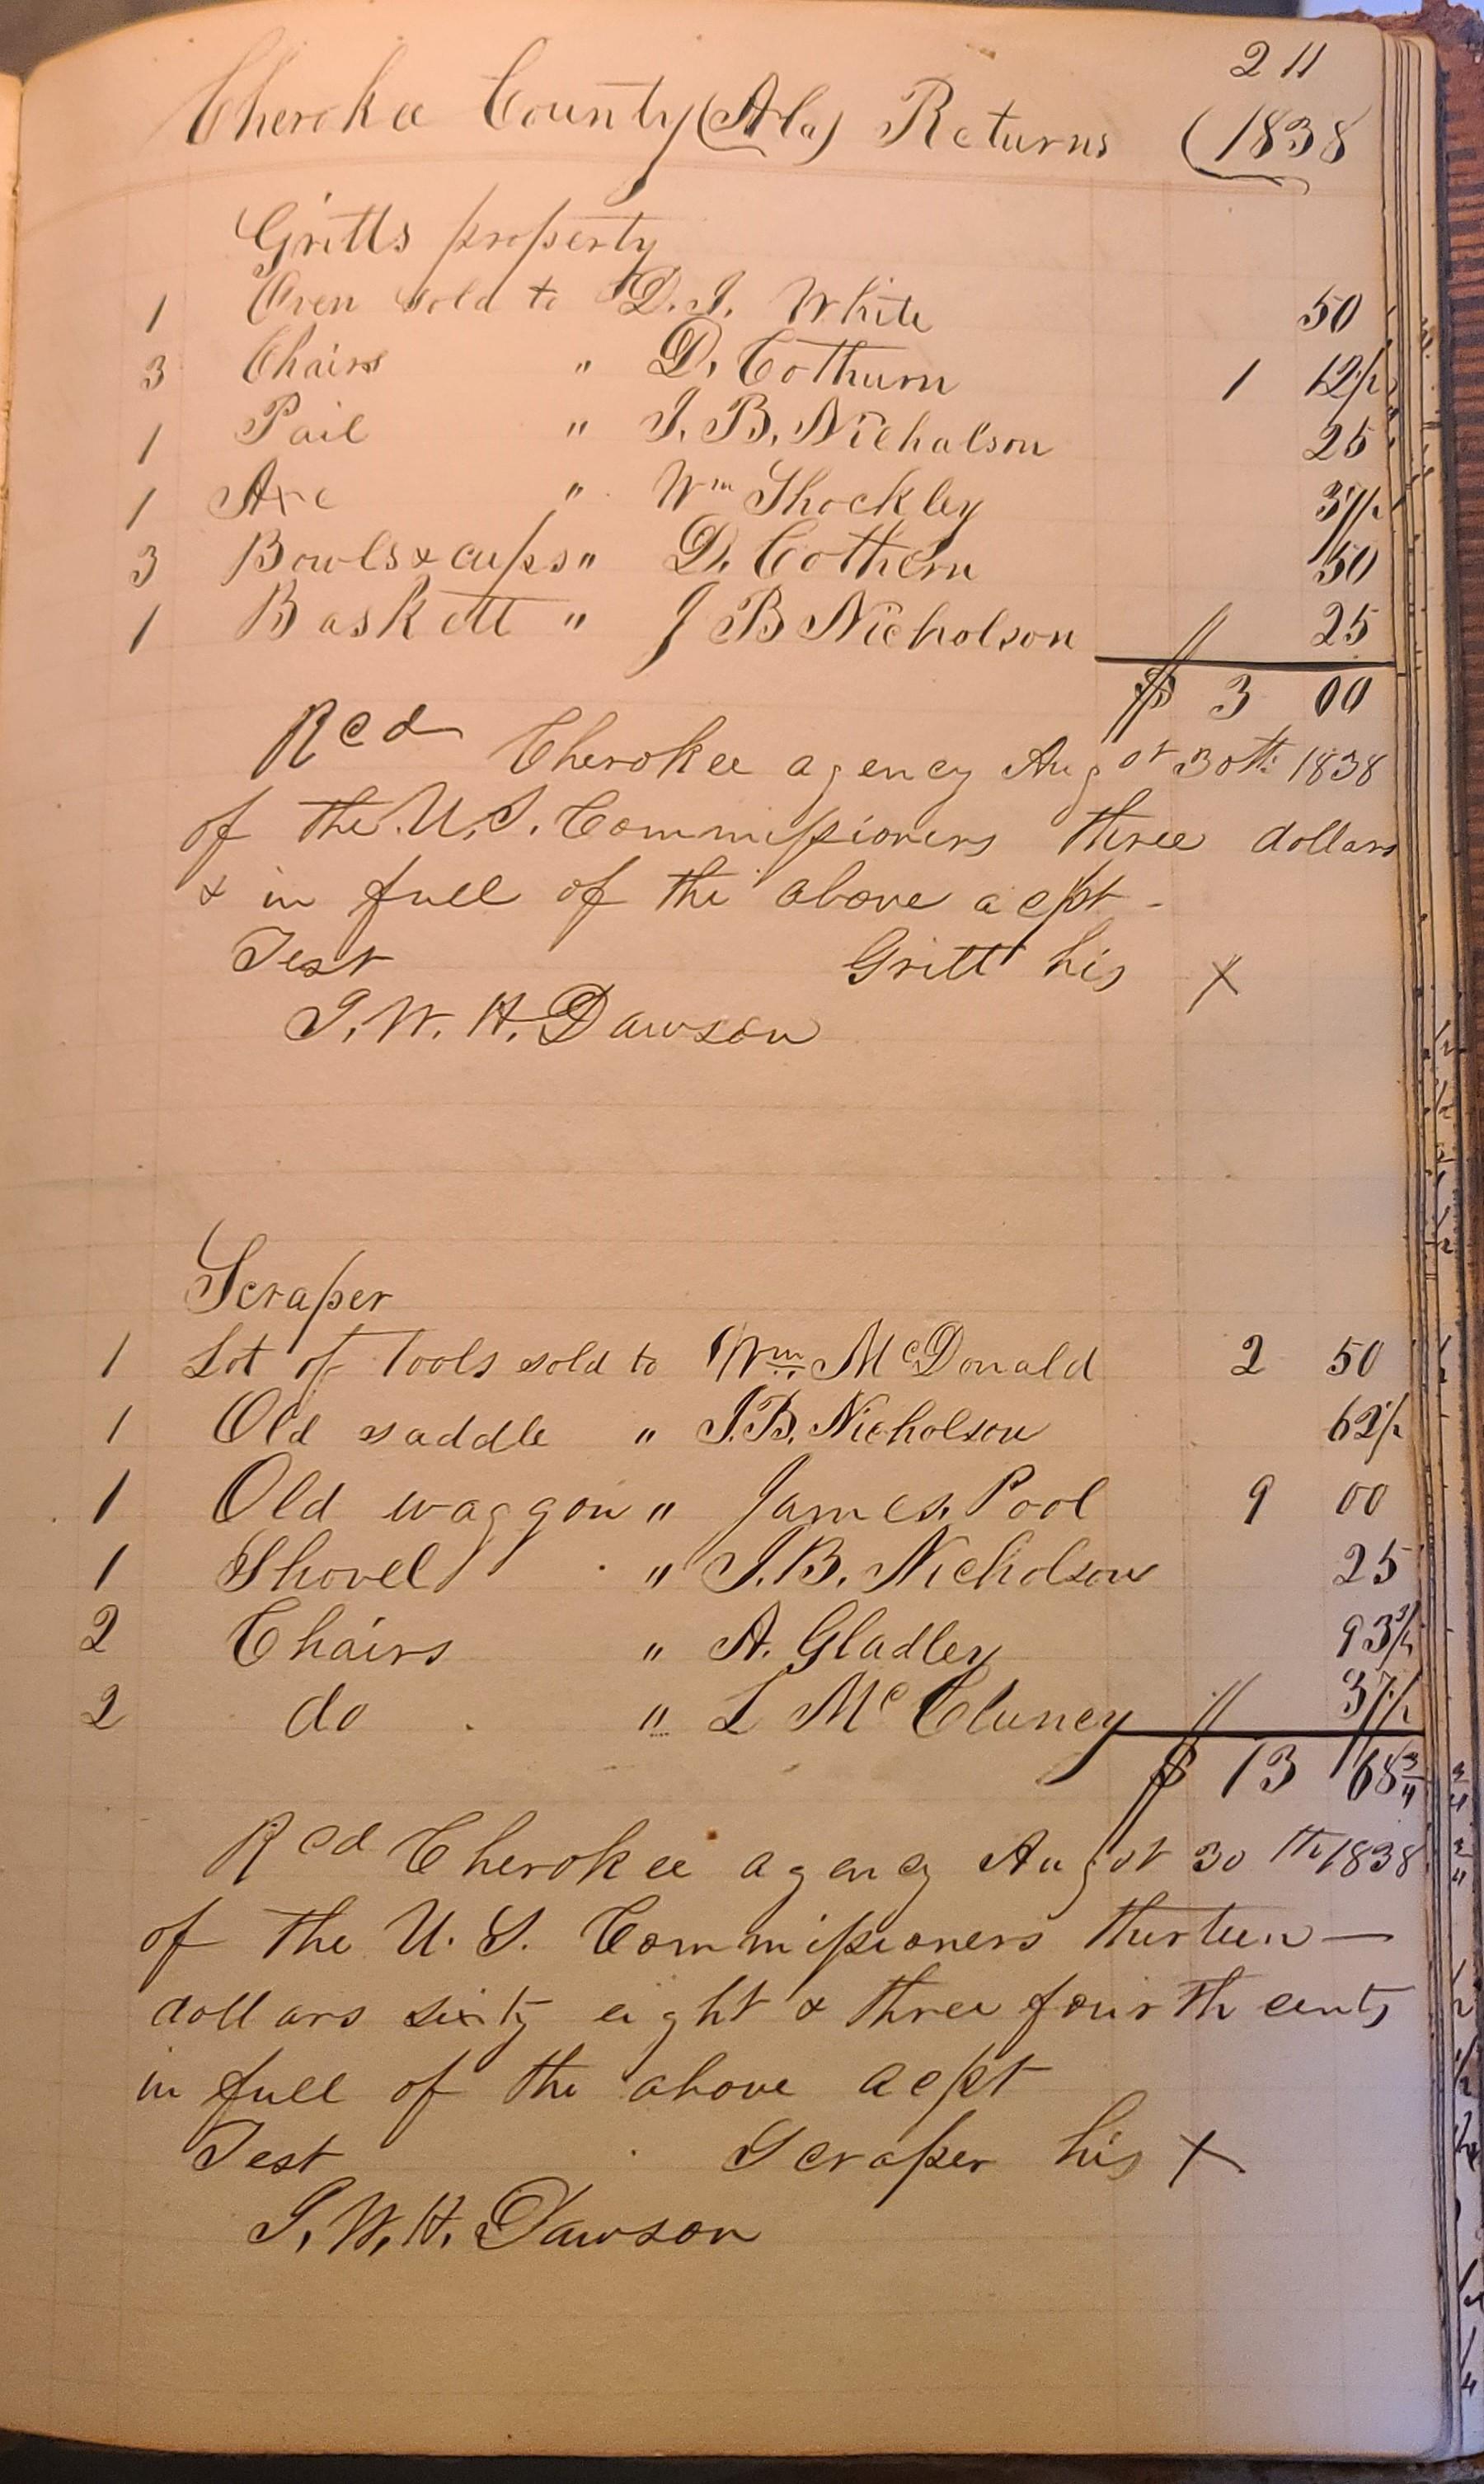 211
Cherokee County (Ala) Returns (1838
Gritts property
1 Oven sold to D. J. White 50
3 Chairs " D. Cothurn 1 12 1/2
1 Pail " J. B. Nichalson 25
1 Axe " Wm Shockley 37 1/2
3 Bowls & cups " D. Cothern 50
1 Baskett " J B Nicholson 25
$ 3 00
Recd Cherokee agency Augst 30th 1838
of the U. S. Commissioners three dollars
& in full of the above acpt -
Test Gritt his X
J. W. H. Dawson
Scraper
1 Lot of Tools sold to Wm McDonald 2 50
1 Old saddle " J. B. Nicholson 62 1/2
1 Old waggon " James Pool 9 00
1 Shovel " J. B. Nicholson 25
2 Chairs " A. Gladley 93 3/4
2 do " L McCluney 37 1/2
$ 13 68 3/4
Recd Cherokee agency Augst 30th 1838
of the U. S. Commissioners thirteen —
dollars sixty eight & three fourth cents
in full of the above acpt
Test Scraper his X
J. W. H. Dawson